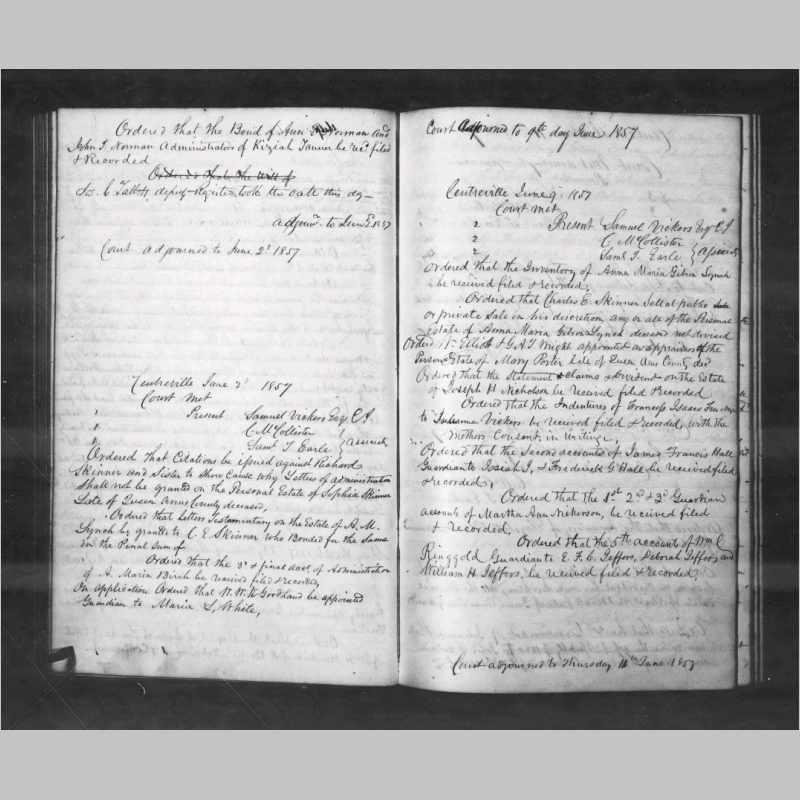 Ordered that the Bond of Ann Norman and
John T. Norman Administrators of Kiziah Tanner be recd filed
& Recorded
Ordered that the Will of
deputy Register took the oath this day
adjnd to June 2d 1857
Court adjourned to June 2d 1857
Centreville June 2d 1857
Court met
Present Samuel Vickers Esq C.J.
C McCollister
Saml T Earle } associates
Ordered that Citations be issued against Richard
Skinner and Sister to Show Cause why Letters of administration
Shall not be granted on the Personal Estate of Sophia Skinner
Late of Queen Anns County deceased,
Ordered that Letters Testamentary on the Estate of A. M.
Lynch be grantd to C. E. Skinner who Bonded for the Same
in the Penal Sum of
Ordered that the 3d & final acct. of Administration
of A. Maria Birch be received filed & recorded,
On application Ordered that W. W. W. Goodhand be appointed
Guardian to Maria L, White,
Court adjourned to 9th day June 1857
Centreville June 9. 1857
Court met
" Present Samuel Vickers Esq C.J
" C. McCollister
" Saml T. Earle } associates
Ordered that the Inventory of Anna Maria Lynch
be received filed & recorded,
Ordered that Charles E. Skinner Sell at public Sale
or private Sale in his discretion any or all of the Personal
Estate of Anna Maria Lynch deceased not devised
Ordered Wm Elliott & G. A. T Wright appointed as appraisers of the
Personal Estate of Mary Late of Queen Ann County decd
Ordered that the Statement & claims & dividend on the Estate
of Joseph H Nicholson be received filed & recorded
Ordered that the Indentures of Francess Isaacs Free
to Vickers be received filed & recorded, with the
Mothers Consent, in Writing,
Ordered that the Second accounts of James Francis Hall
Guardian to Josiah I, & Frederick G Hall be received filed
& recorded,
Ordered that the 1st 2d & 3d Guardian
accounts of Martha Ann Nickerson, be received filed
& recorded.
Ordered that the 5th accounts of Wm C
Ringgold Guardian to E. F. C. Jeffors, Deborah Jeffors, and
William H. Jeffors, be received filed & recorded,
Court adjourned to Thursday 11th June 1857